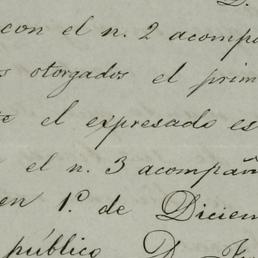 D.
con el n. 2 acompa
s otorgados el prim
te el expresado es
el n. 3 acompañ
en 1.º de Diciem
público D. Fr